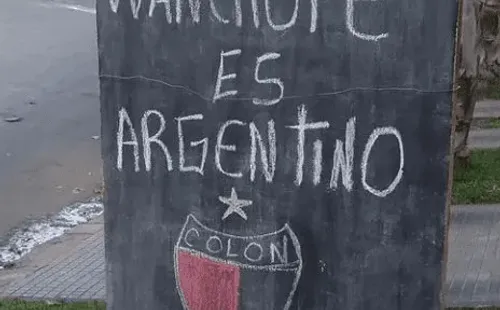 WANCHOPE
ES
ARGENTINO
COLON